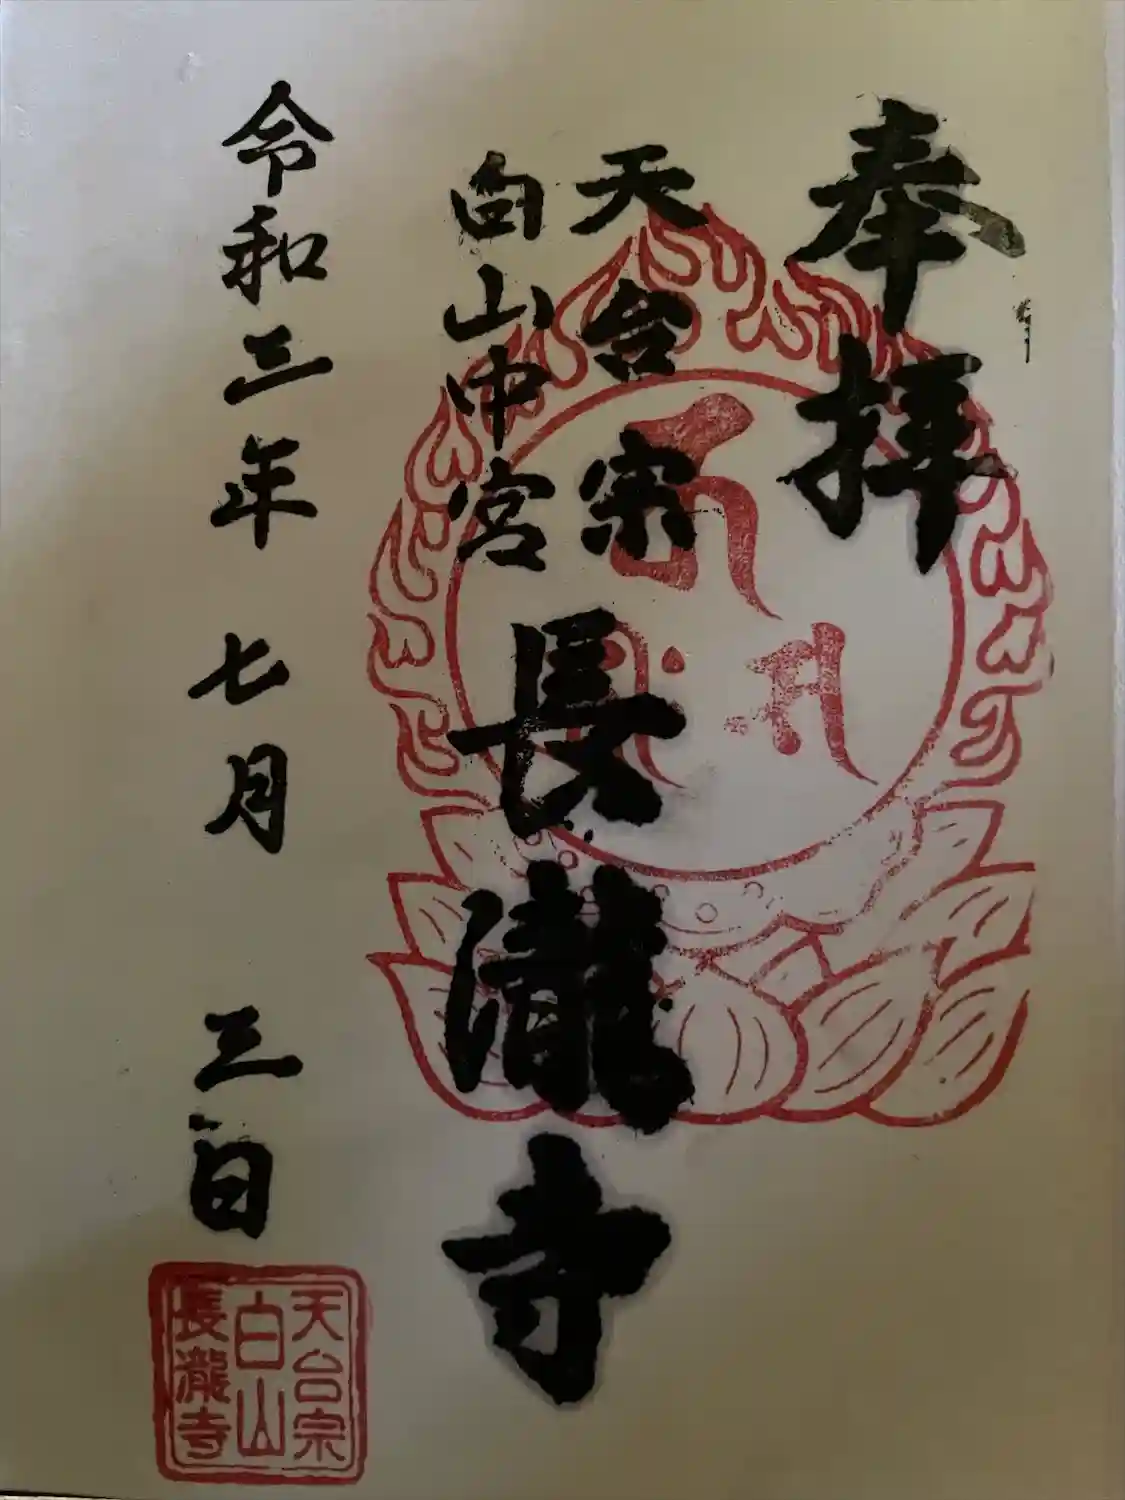 奉拝
天台宗
白山中宮
長瀧寺
令和三年 七月 三日
天台宗
白山
長瀧寺